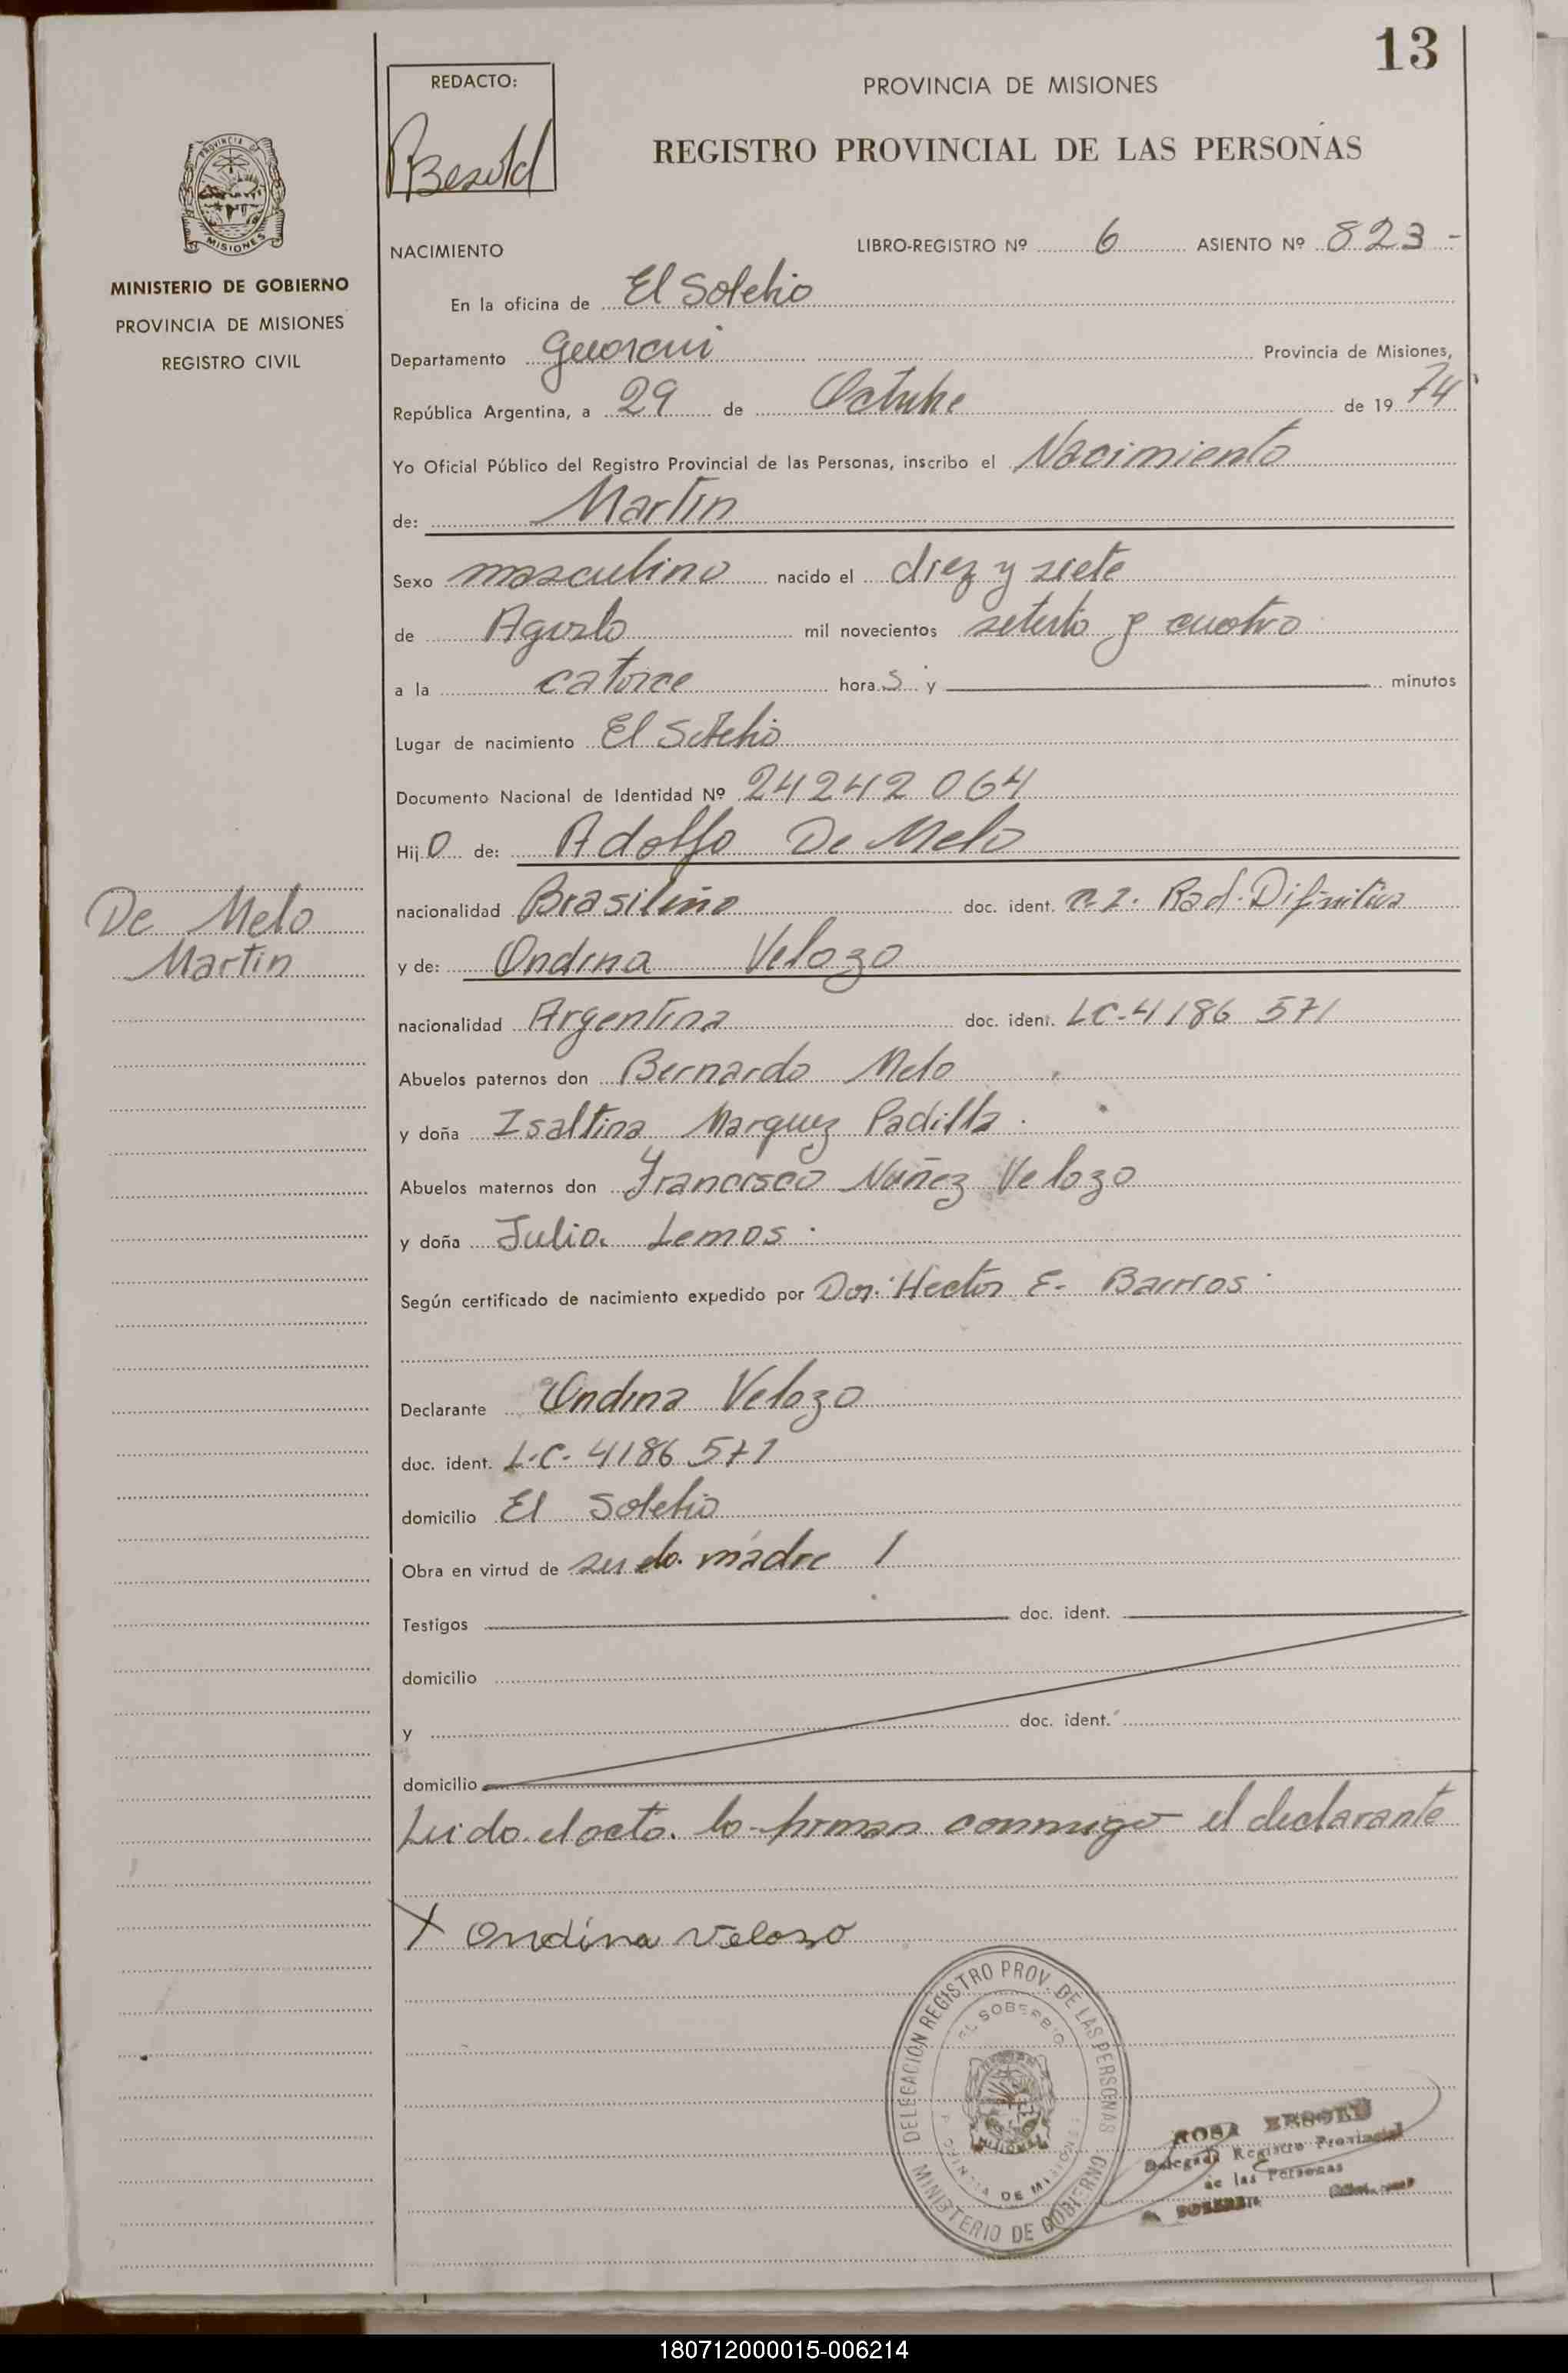 13
REDACTO:
PROVINCIA DE MISIONES
Besold
REGISTRO PROVINCIAL DE LAS PERSONAS
PROVINCIA DE
MISIONES
MINISTERIO DE GOBIERNO
PROVINCIA DE MISIONES
REGISTRO CIVIL
NACIMIENTO LIBRO-REGISTRO Nº 6 ASIENTO Nº 823-
En la oficina de El Soberbio
Departamento Guarani Provincia de Misiones,
República Argentina, a 29 de Octubre de 19 74
Yo Oficial Público del Registro Provincial de las Personas, inscribo el Nacimiento
de: Martin
Sexo masculino nacido el diez y siete
de Agosto mil novecientos setenta y cuatro
a la catorce hora s y minutos
Lugar de nacimiento El Soberbio
Documento Nacional de Identidad Nº 24242064
Hij o de: Adolfo De Melo
De Melo
Martin
nacionalidad Brasileño doc. ident. Rad. Difinitiva
y de: Ondina Velozo
nacionalidad Argentina doc. ident. LC-4186 571
Abuelos paternos don Bernardo Melo
y doña Isaltina Marquez Padilla.
Abuelos maternos don Francisco Nuñez Velozo
y doña Julia Lemos.
Según certificado de nacimiento expedido por Don: Hector E. Barrios.
Declarante Ondina Velozo
doc. ident. L.C. 4186 571
domicilio El Soberbio
Obra en virtud de ser la madre /
Testigos doc. ident.
domicilio
y doc. ident.
domicilio
Leido el acto. lo firman conmigo el declarante
X Ondina Velozo
DELEGACION REGISTRO PROV. DE LAS PERSONAS
EL SOBERBIO
MISIONES
PROVINCIA DE MISIONES
MINISTERIO DE GOBIERNO
ROSA BESOLD
Delegada Registro Provincial
de las Personas
180712000015-006214